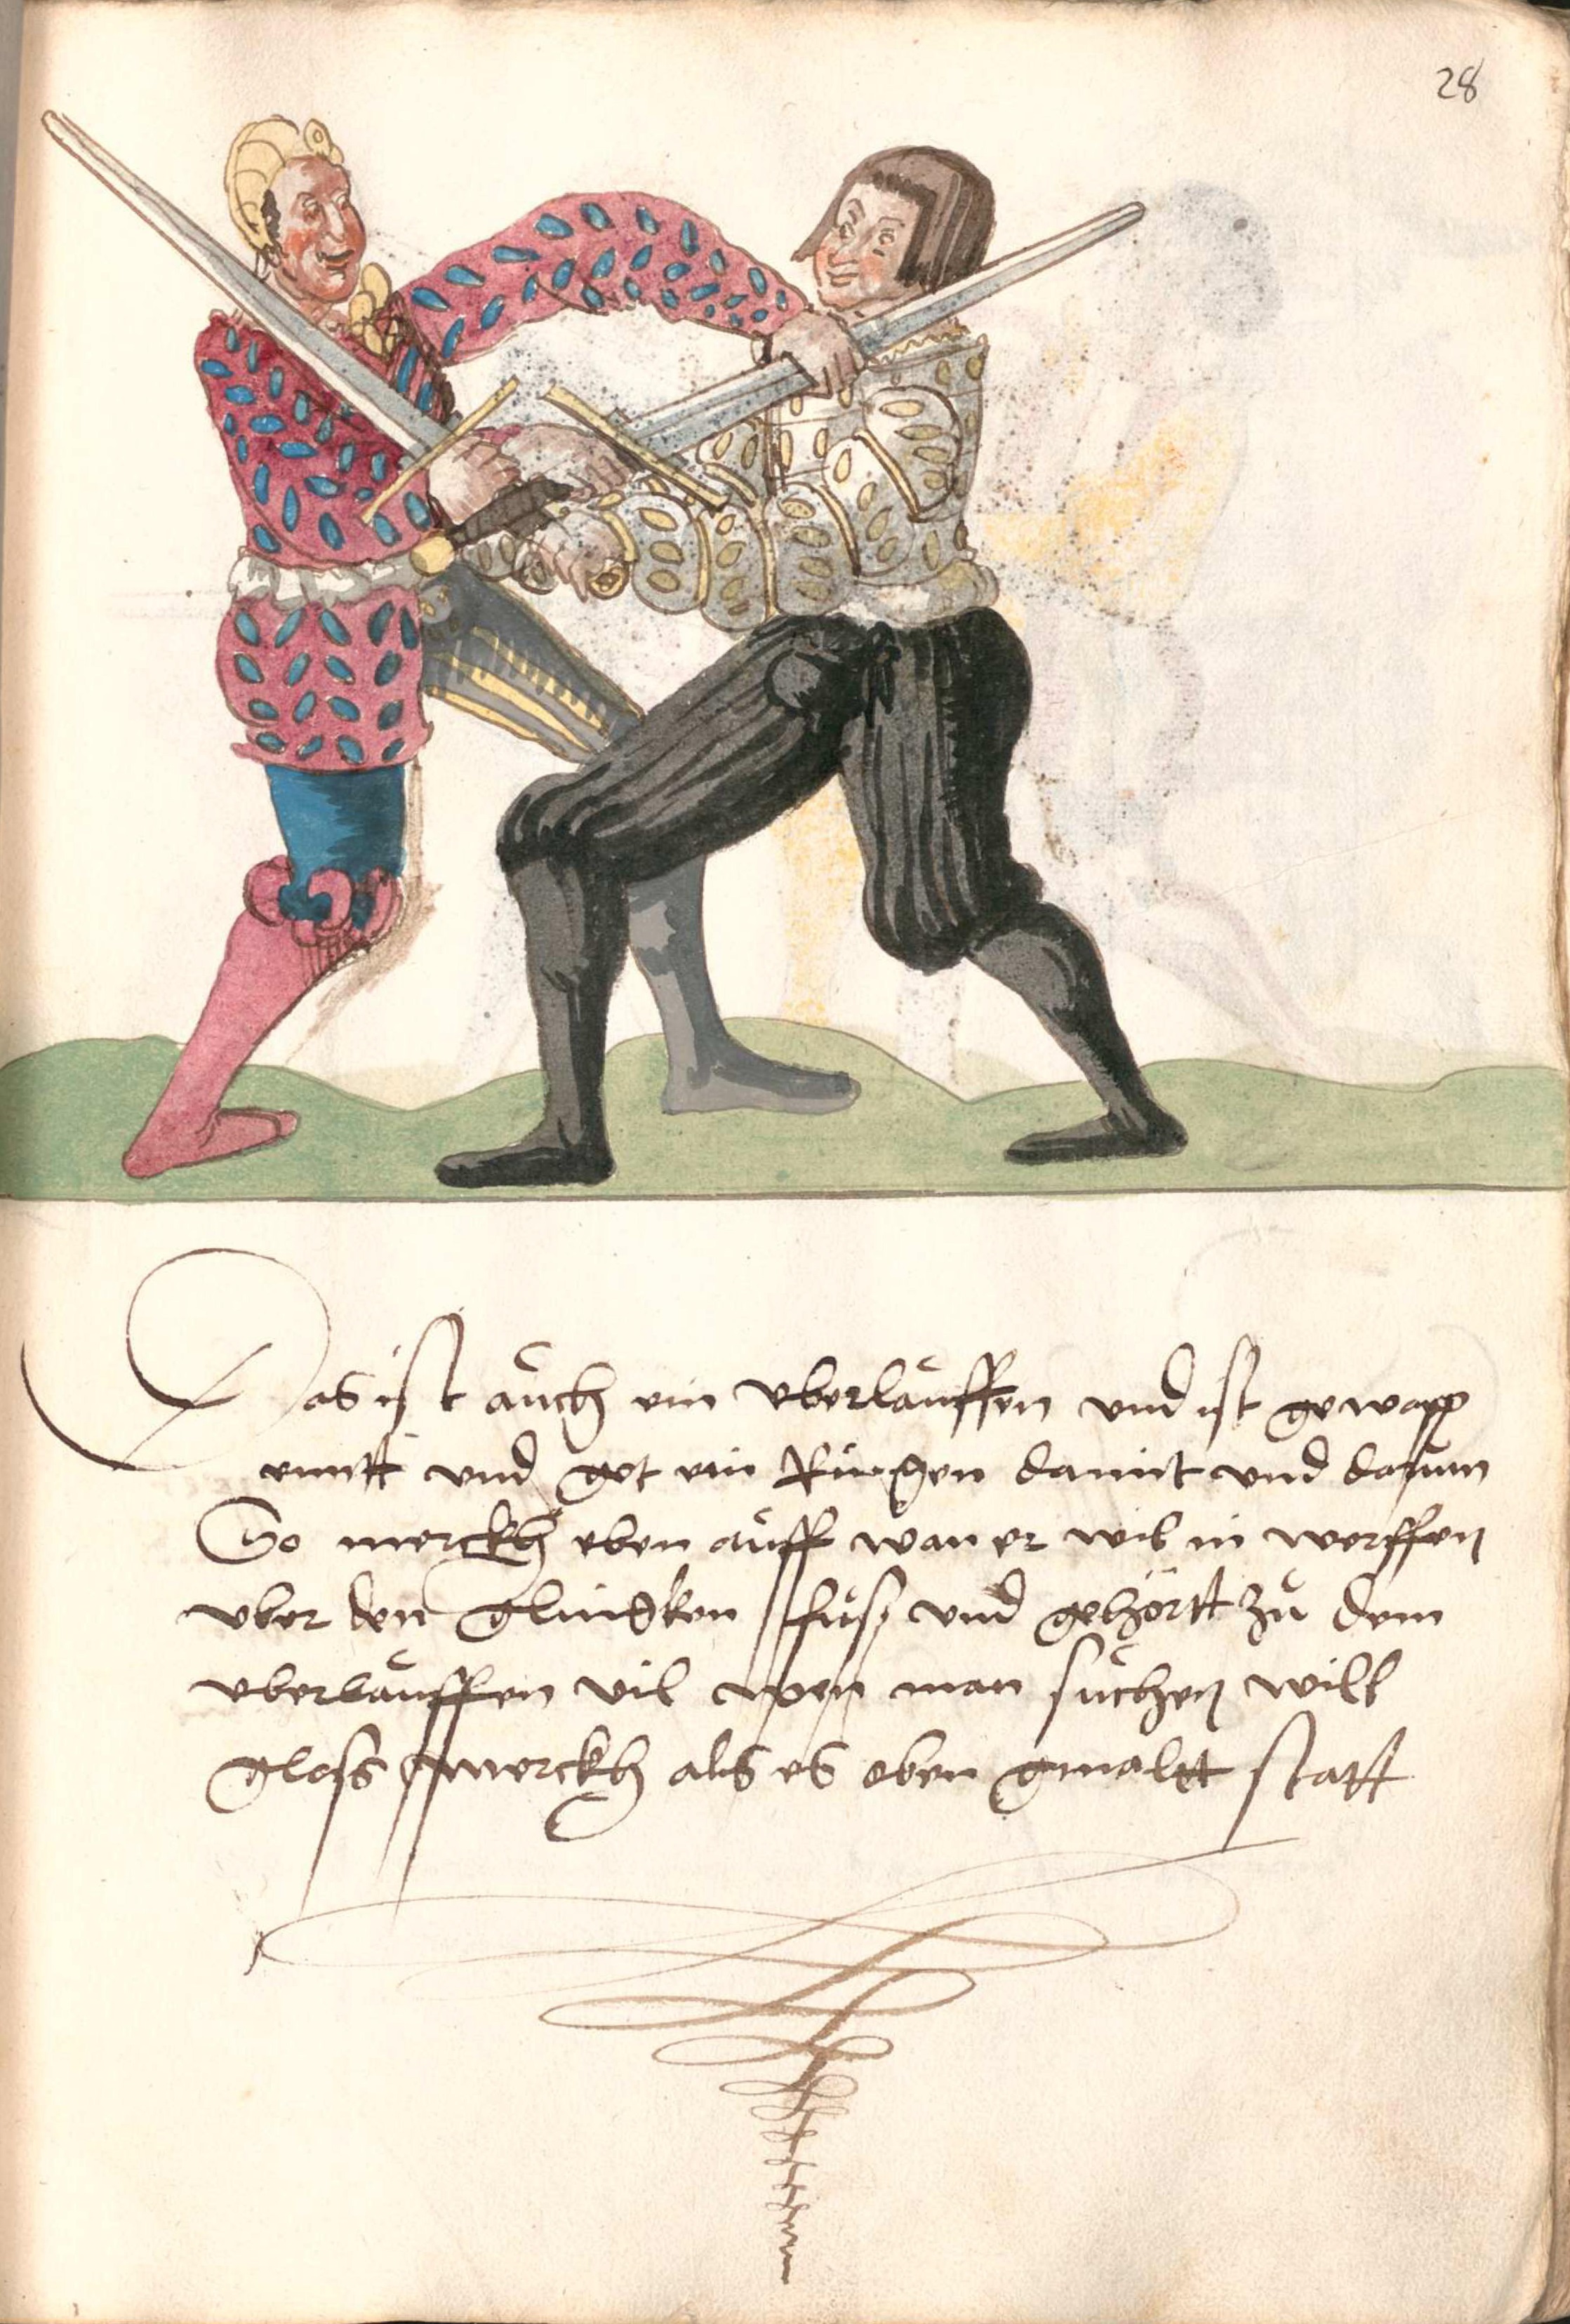 28
Das ist auch ein vberlauffen vnd ist gewapp
enntt vnd get ein Ringen damit vnd darum
So merckh eben auff wan er wil in werffen
vber den glingken fuss vnd gehörtt zu dem
vberlauffen vil wen man suchen will
gloss merckh als es eben gmaltt statt